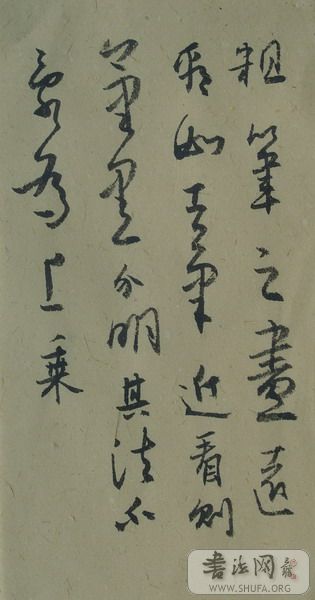 粗筆之畫遠
看如筆近看則
筆墨分明其法
為上乘
書法网
WWW.SHUFA.ORG